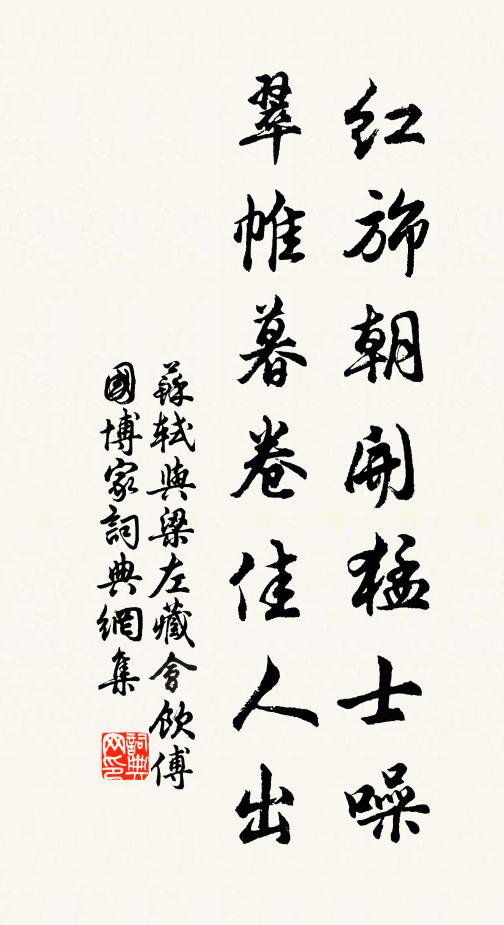 紅斾朝開猛士噪
翠帷暮卷佳人出
蘇軾與梁左藏會飲傅
國博家詞典網集
詞典網印